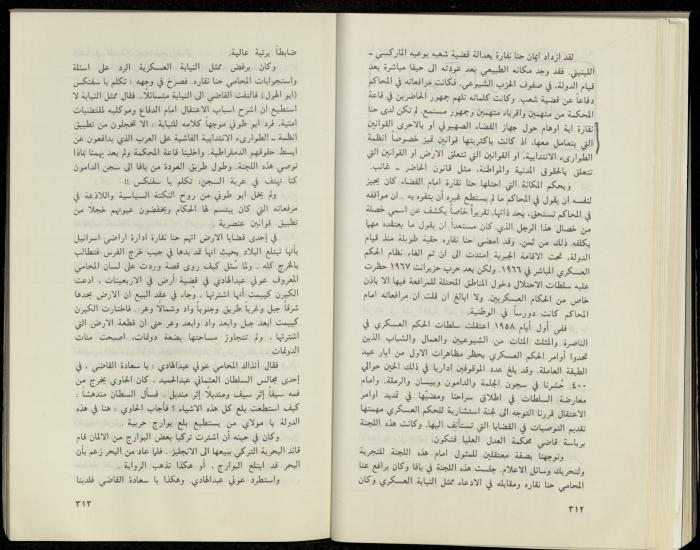 لقد ازداد ايمان حنا نقارة بعدالة قضية شعبه بوعيه الماركسي ـ
اللينيني. فقد وجد مكانه الطبيعي بعد عودته الى حيفا مباشرة بعد
قيام الدولة، في صفوف الحزب الشيوعي. فكانت مرافعاته في المحاكم
دفاعاً عن قضية شعب. وكانت كلماته تلهم جمهور الحاضرين في قاعة
المحكمة من متهمين واقرباء متهمين وجمهور مستمع. لم تكن لدى حنا
نقارة اية اوهام حول جهاز القضاء الصهيوني او بالاحرى القوانين
التي يتعامل معها، اذ كانت باكثريتها قوانين تميز خصوصاً انظمة
الطوارىء الانتدابية، او القوانين التي تتعلق الارض او القوانين التي
تتعلق بالحقوق المدنية والمواطنة، مثل قانون الحاضر ـ غائب.
وبحكم المكانة التي احتلها حنا نقارة امام القضاء كان يجيز
لنفسه ان يقول في المحاكم ما لم يستطع غيره أن يتفوه به. ان مواقفه
في المحاكم تستحق، بحد ذاتها، تقريراً خاصاً يكشف عن اسمى خصلة
من خصال هذا الرجل الذي كان مستعداً ان يقول ما يعتقده مهما
يكلفه ذلك من ثمن. وقد امضى حنا نقاره حقبة طويلة منذ قيام
الدولة، تحت الاقامة الجبرية امتدت الى ان تم الغاء نظام الحكم
العسكري المباشر في ١٩٦٦. ولكن بعد حرب حزيران ١٩٦٧ حظرت
عليه سلطات الاحتلال دخول المناطق المحتلة للمرافعة فيها الا باذن
خاص من الحكام العسكريين. ولا ابالغ ان قلت ان مرافعاته امام
المحاكم كانت دورساً في الوطنية.
ففي أول أيار ١٩٥٨ اعتقلت سلطات الحكم العسكري في
الناصرة والمثلث المئات من الشيوعيين والعمال والشباب الذين
تحدوا أوامر الحكم العسكري بحظر مظاهرات الاول من ايار عيد
الطبقة العاملة. وقد بلغ عدد الموقوفين اداريا في ذلك الحين حوالي
٤٠٠. حُشرنا في سجون الجلمة والدامون وبيسان والرملة. وامام
معارضة السلطات في اطلاق سراحنا ومضيّها في تمديد اوامر
الاعتقال قررنا التوجه الى لجنة استشارية للحكم العسكري مهمتها
تقديم التوصيات في القضايا التي تستأنف اليها. وكانت هذه اللجنة
برياسة قاضي محكمة العدل العليا فتكون:
وتوجهنا بصفة معتقلين للمثول امام هذه اللجنة للتجربة
ولتحريك وسائل الاعلام. جلست هذه اللجنة في يافا وكان يرافع عنا
المحامي حنا نقاره ومقابله في الادعاء ممثل النيابة العسكري وكان
٣١٢
ضابطاً برتبة عالية.
وكان يرفض ممثل النيابة العسكرية الرد على اسئلة
واستجوابات المحامي حنا نقاره. فصرخ في وجهه: تكلم يا سفنكس
(ابو الهول) فالتفت القاضي الى النيابة متسائلاً.. فقال ممثل النيابة لا
استطيع ان اشرح اسباب الاعتقال امام الدفاع وموكليه لمقتضيات
امنية. فرد ابو طوني موجهاً كلامه للنيابة: الا تخجلون من تطبيق
انظمة ـ الطوارىء الانتدابية الفاشية على العرب الذي يدافعون عن
ابسط حقوقهم الدمقراطية. واخلينا قاعة المحكمة ولم يعد يهمنا بماذا
توصي هذه اللجنة. وطول طريق العودة من يافا الى سجن الدامون
كنا نهتف في عربة السجن: تكلم يا سفنكس !!
ولم يخل ابو طوني من روح النكتة السياسية واللاذعة في
مرفعاته التي كان يبتسم لها الحكام ويخفضون عيونهم خجلاً من
تطبيق قوانين عنصرية
في إحدى قضايا الارض اتهم حنا نقارة ادارة اراضي اسرائيل
بأنها تبتلع البلاد بحيث انها تمد يدها في جيب خرج الفرس فتطالب
بالخرج كله. ولما سُئل كيف روى قصة وردت على لسان المحامي
المعروف عوني عبدالهادي في قضية أرض في الاربعينات، ادعت
الكيرن كييمت أنها اشترتها. وجاء في عقد البيع ان الارض يحدها
شرقاً جبل وغرباً طريق وجنوباً واد وشمالاً وعر. فاختارت الكيرن
كييمت ابعد جبل وابعد واد وابعد وعر حتى ان قطعة الارض التي
اشترتها، ولم تتجاوز مساحتها بضعة دونمات، اصبحت مئات
الدونمات.
فقال آنذاك المحامي عوني عبدالهادي: يا سعادة القاضي، في
إحدى مجالس السلطان العثماني عبدالحميد، كان الحاوي يخرج من
فمه سيفاً إثر سيف ومنديلاً إثر منديل. فسأل السطان مندهشاً:
كيف استطعت بلع كل هذه الاشياء! فأجاب الحاوي: هنا في هذه
الدولة يا مولاي من يستطيع بلع بوارج حربية.
وكان في حينه أن اشترت تركيا بعض البوارج من الالمان قام
قائد البحرية التركي ببيعها الى الانجليز. فلما عاد من البحر زعم بأن
البحر قد ابتلع البوارج، أو هكذا تذهب الرواية.
واستطرد عوني عبدالهادي. وهكذا يا سعادة القاضي فلدينا
٣١٣